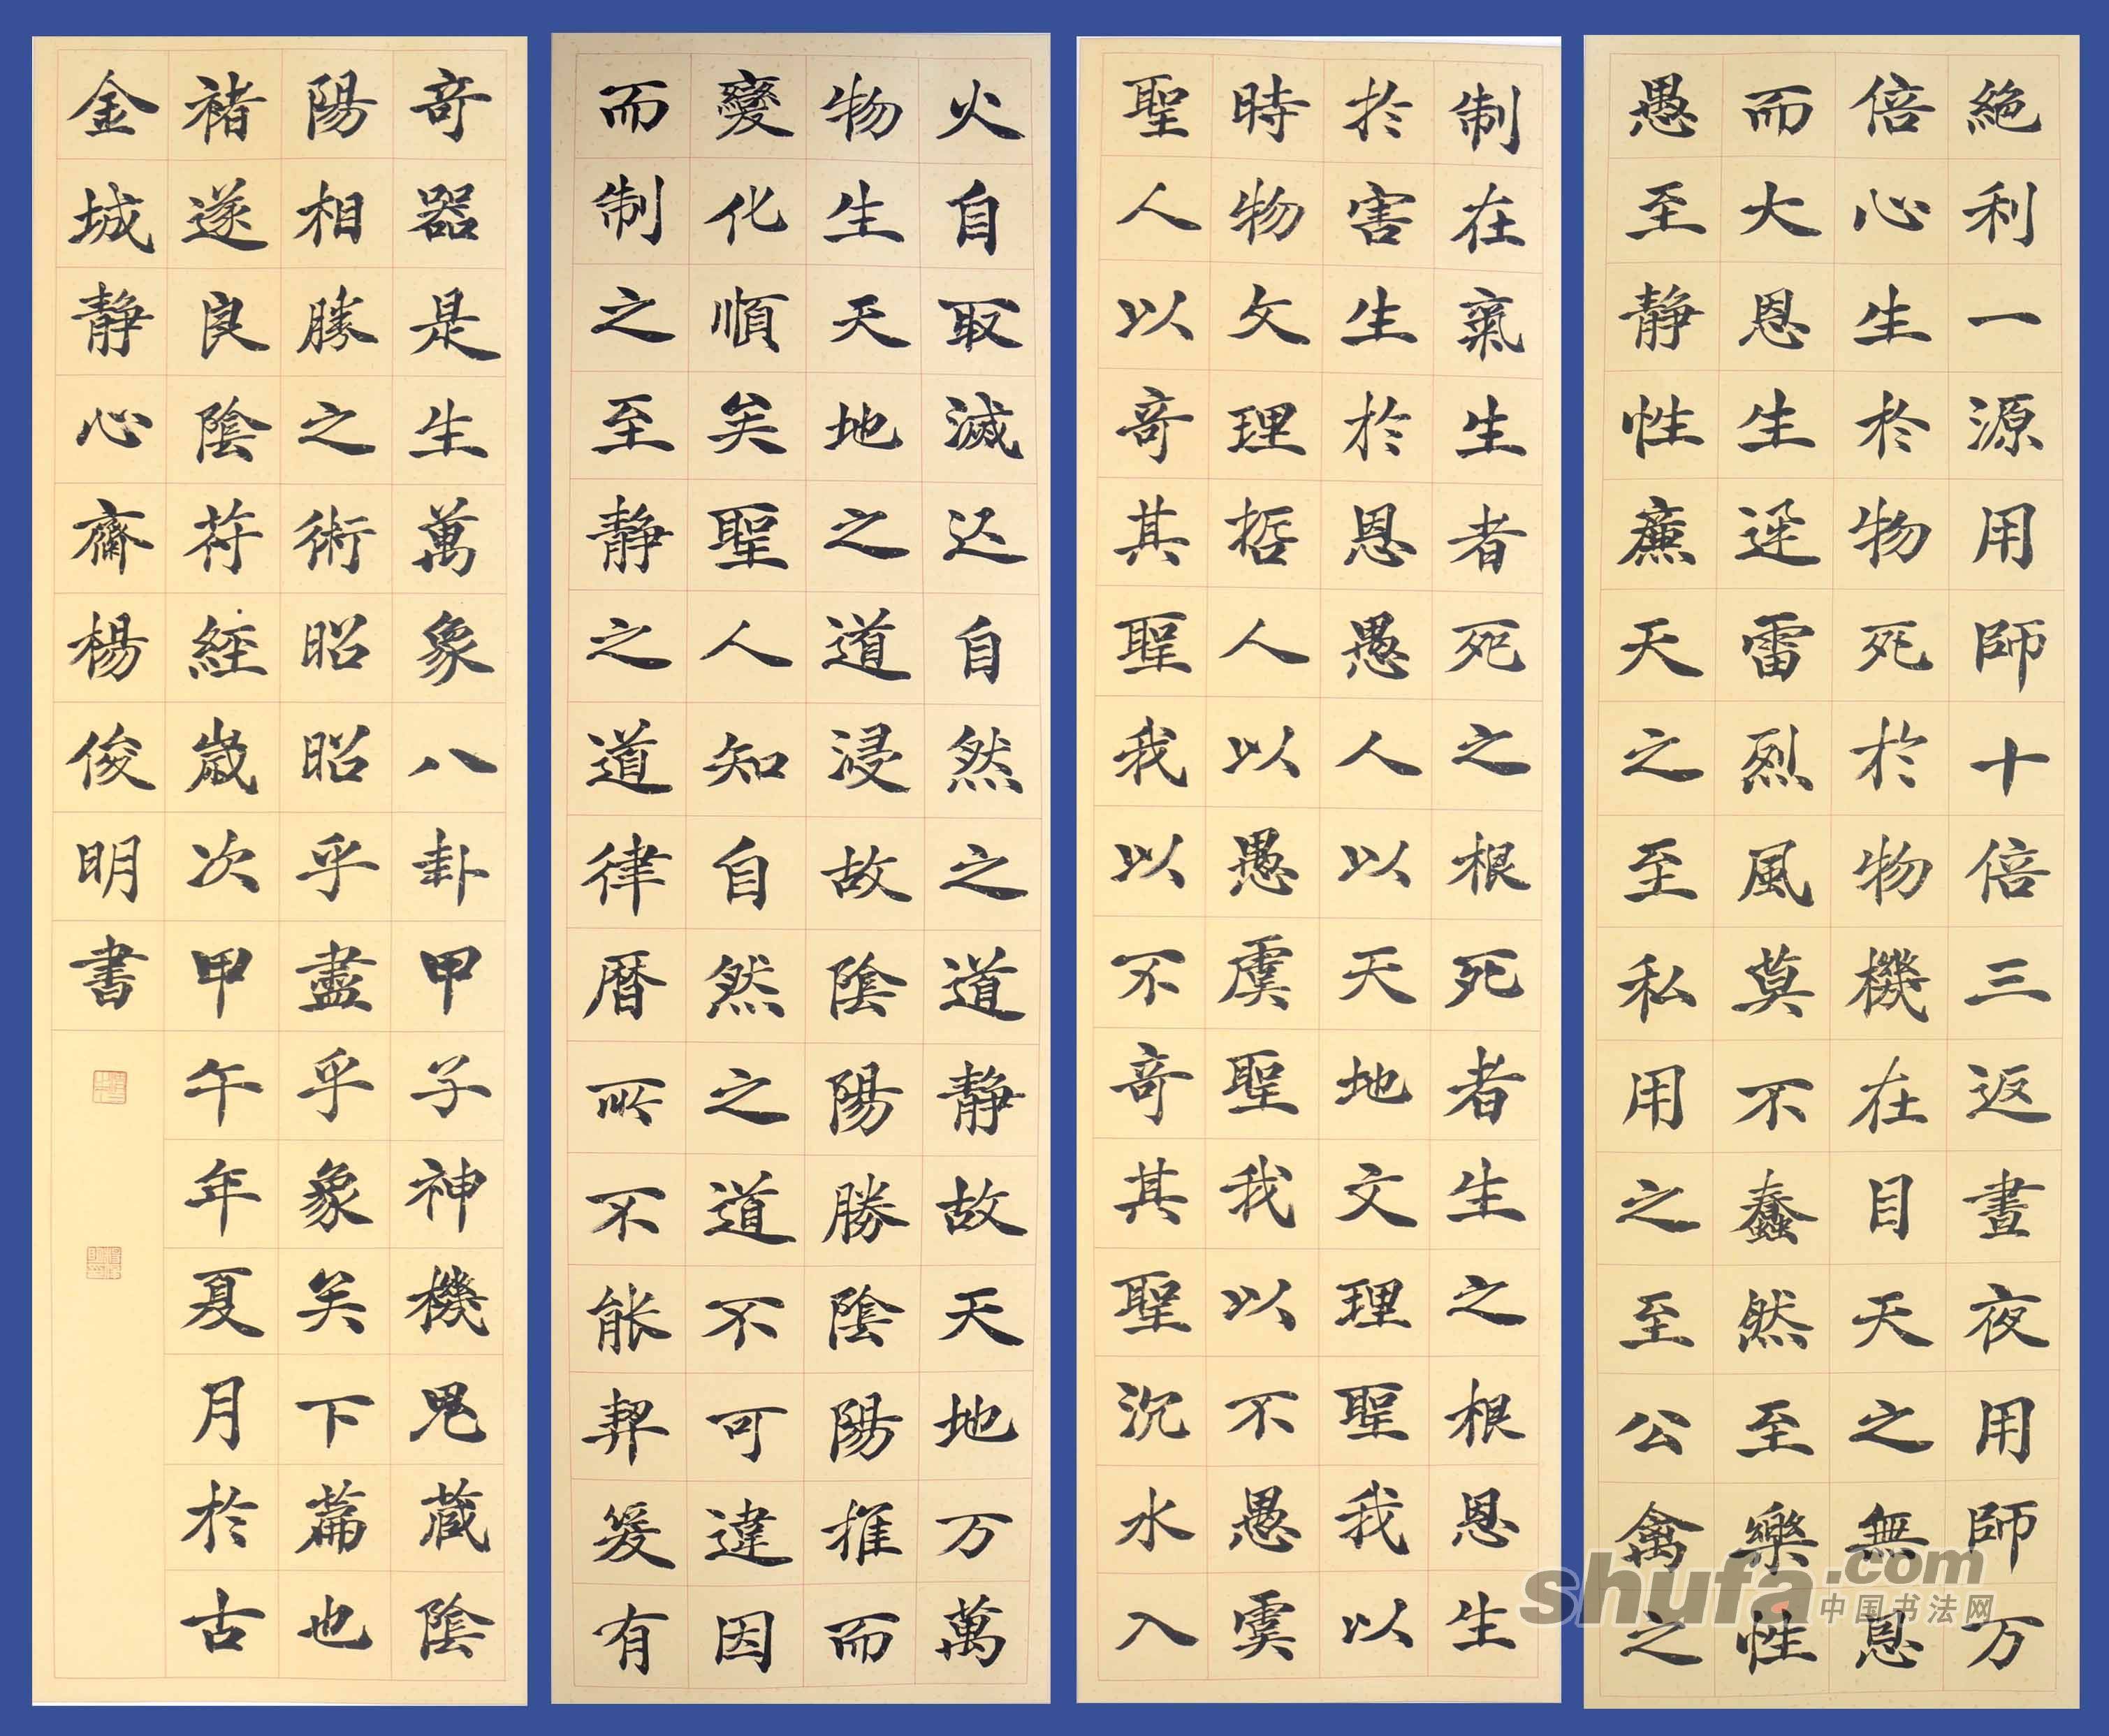 絶利一源用師十倍三返晝夜用師万
倍心生於物死於物機在目天之無恩
而大恩生迅雷烈風莫不蠢然至樂性
愚至静性廉天之至私用之至公禽之
制在氣生者死之根死者生之根恩生
於害生於恩愚人以天地文理聖我以
時物文理哲人以愚虞聖我以不愚虞
聖人以奇其聖我以不奇其聖沉水入
火自取滅迟自然之道静故天地万萬
物生天地之道浸故陰陽勝陰陽推而
變化順矣聖人知自然之道不可違因
而制之至静之道律暦所不能契爰有
奇器是生萬象八卦甲子神機鬼藏陰
陽相勝之術昭昭乎盡乎象矣下篇也
褚遂良陰符經歲次甲午年夏月於古
金城静心齋楊俊明書
shufa.com
中国书法网